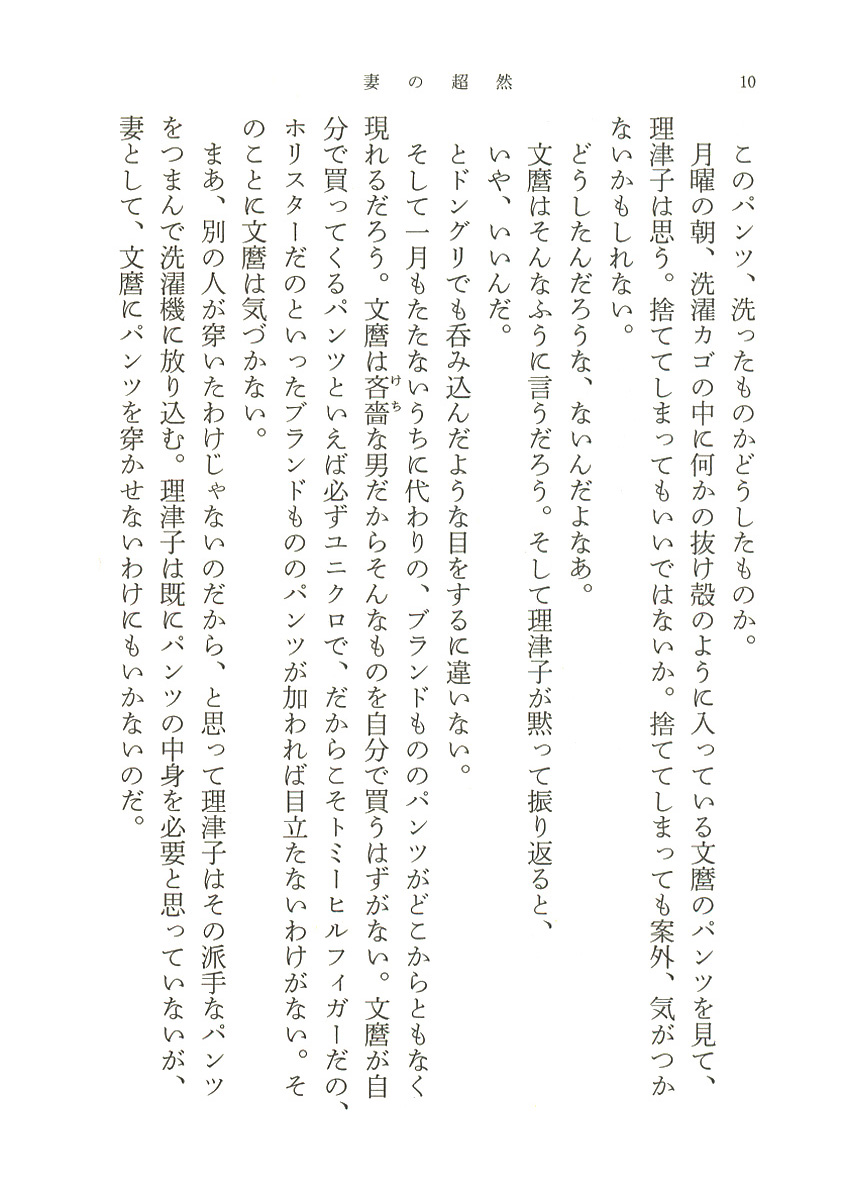 妻の超然
10
このパンツ、洗ったものかどうしたものか。
月曜の朝、洗濯カゴの中に何かの抜け殻のように入っている文麿のパンツを見て、
理津子は思う。捨ててしまってもいいではないか。捨ててしまっても案外、気がつか
ないかもしれない。
どうしたんだろうな、ないんだよなあ。
文麿はそんなふうに言うだろう。そして理津子が黙って振り返ると、
いや、いいんだ。
とドングリでも呑み込んだような目をするに違いない。
そして一月もたたないうちに代わりの、ブランドもののパンツがどこからともなく
現れるだろう。文麿は吝嗇けちな男だからそんなものを自分で買うはずがない。文麿が自
分で買ってくるパンツといえば必ずユニクロで、だからこそトミーヒルフィガーだの、
ホリスターだのといったブランドもののパンツが加われば目立たないわけがない。そ
のことに文麿は気づかない。
まあ、別の人が穿いたわけじゃないのだから、と思って理津子はその派手なパンツ
をつまんで洗濯機に放り込む。理津子は既にパンツの中身を必要と思っていないが、
妻として、文麿にパンツを穿かせないわけにもいかないのだ。